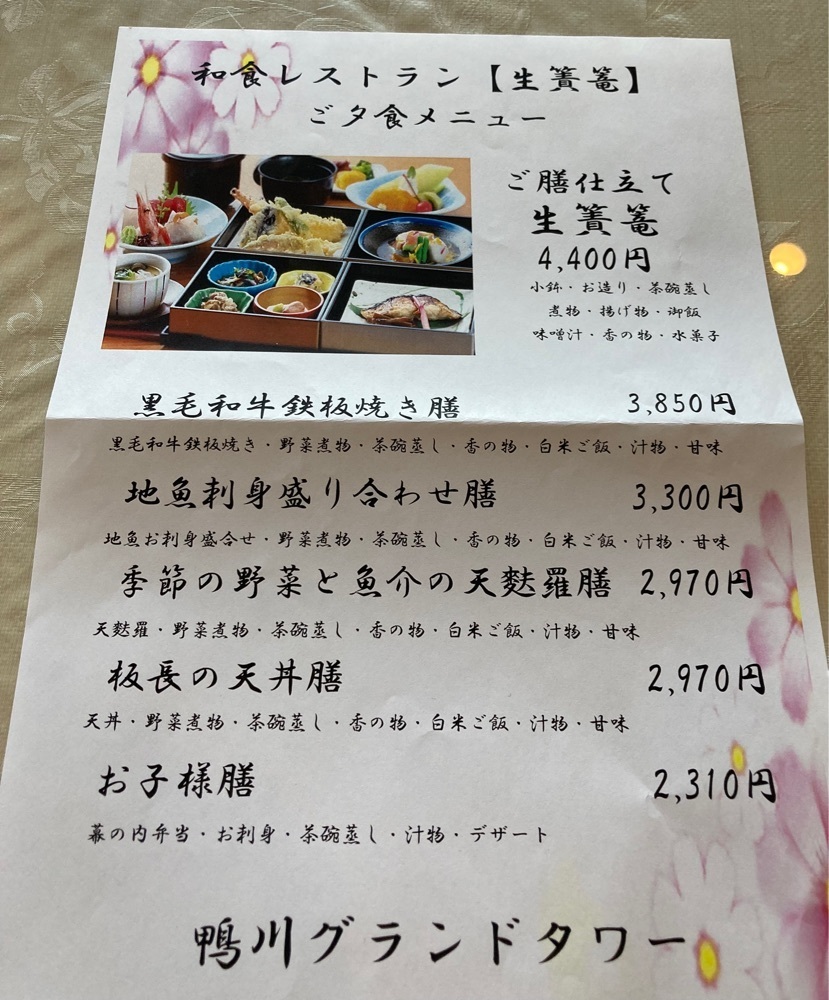 和食レストラン【生簀篭】
ご夕食メニュー
ご膳仕立て
生簀篭
4,400円
小鉢・お造り・茶碗蒸し
煮物・揚げ物・御飯
味噌汁・香の物・水菓子
黒毛和牛鉄板焼き膳 3,850円
黒毛和牛鉄板焼き・野菜煮物・茶碗蒸し・香の物・白米ご飯・汁物・甘味
地魚刺身盛り合わせ膳 3,300円
地魚お刺身盛合せ・野菜煮物・茶碗蒸し・香の物・白米ご飯・汁物・甘味
季節の野菜と魚介の天麩羅膳 2,970円
天麩羅・野菜煮物・茶碗蒸し・香の物・白米ご飯・汁物・甘味
板長の天丼膳 2,970円
天丼・野菜煮物・茶碗蒸し・香の物・白米ご飯・汁物・甘味
お子様膳 2,310円
幕の内弁当・お刺身・茶碗蒸し・汁物・デザート
鴨川グランドタワー